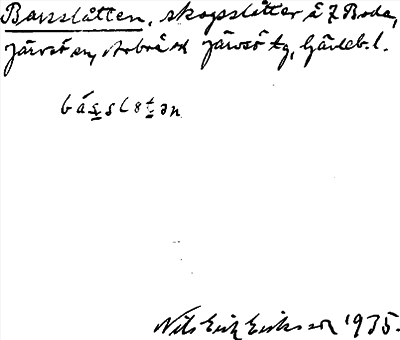 Bassslåtten, skogsslåtter å 7 Boda,
Järvsö sn, Arbrå o Järvsö tg, Gävleb. l.
básslɵtən
Nils Erik Eriksson 1935.